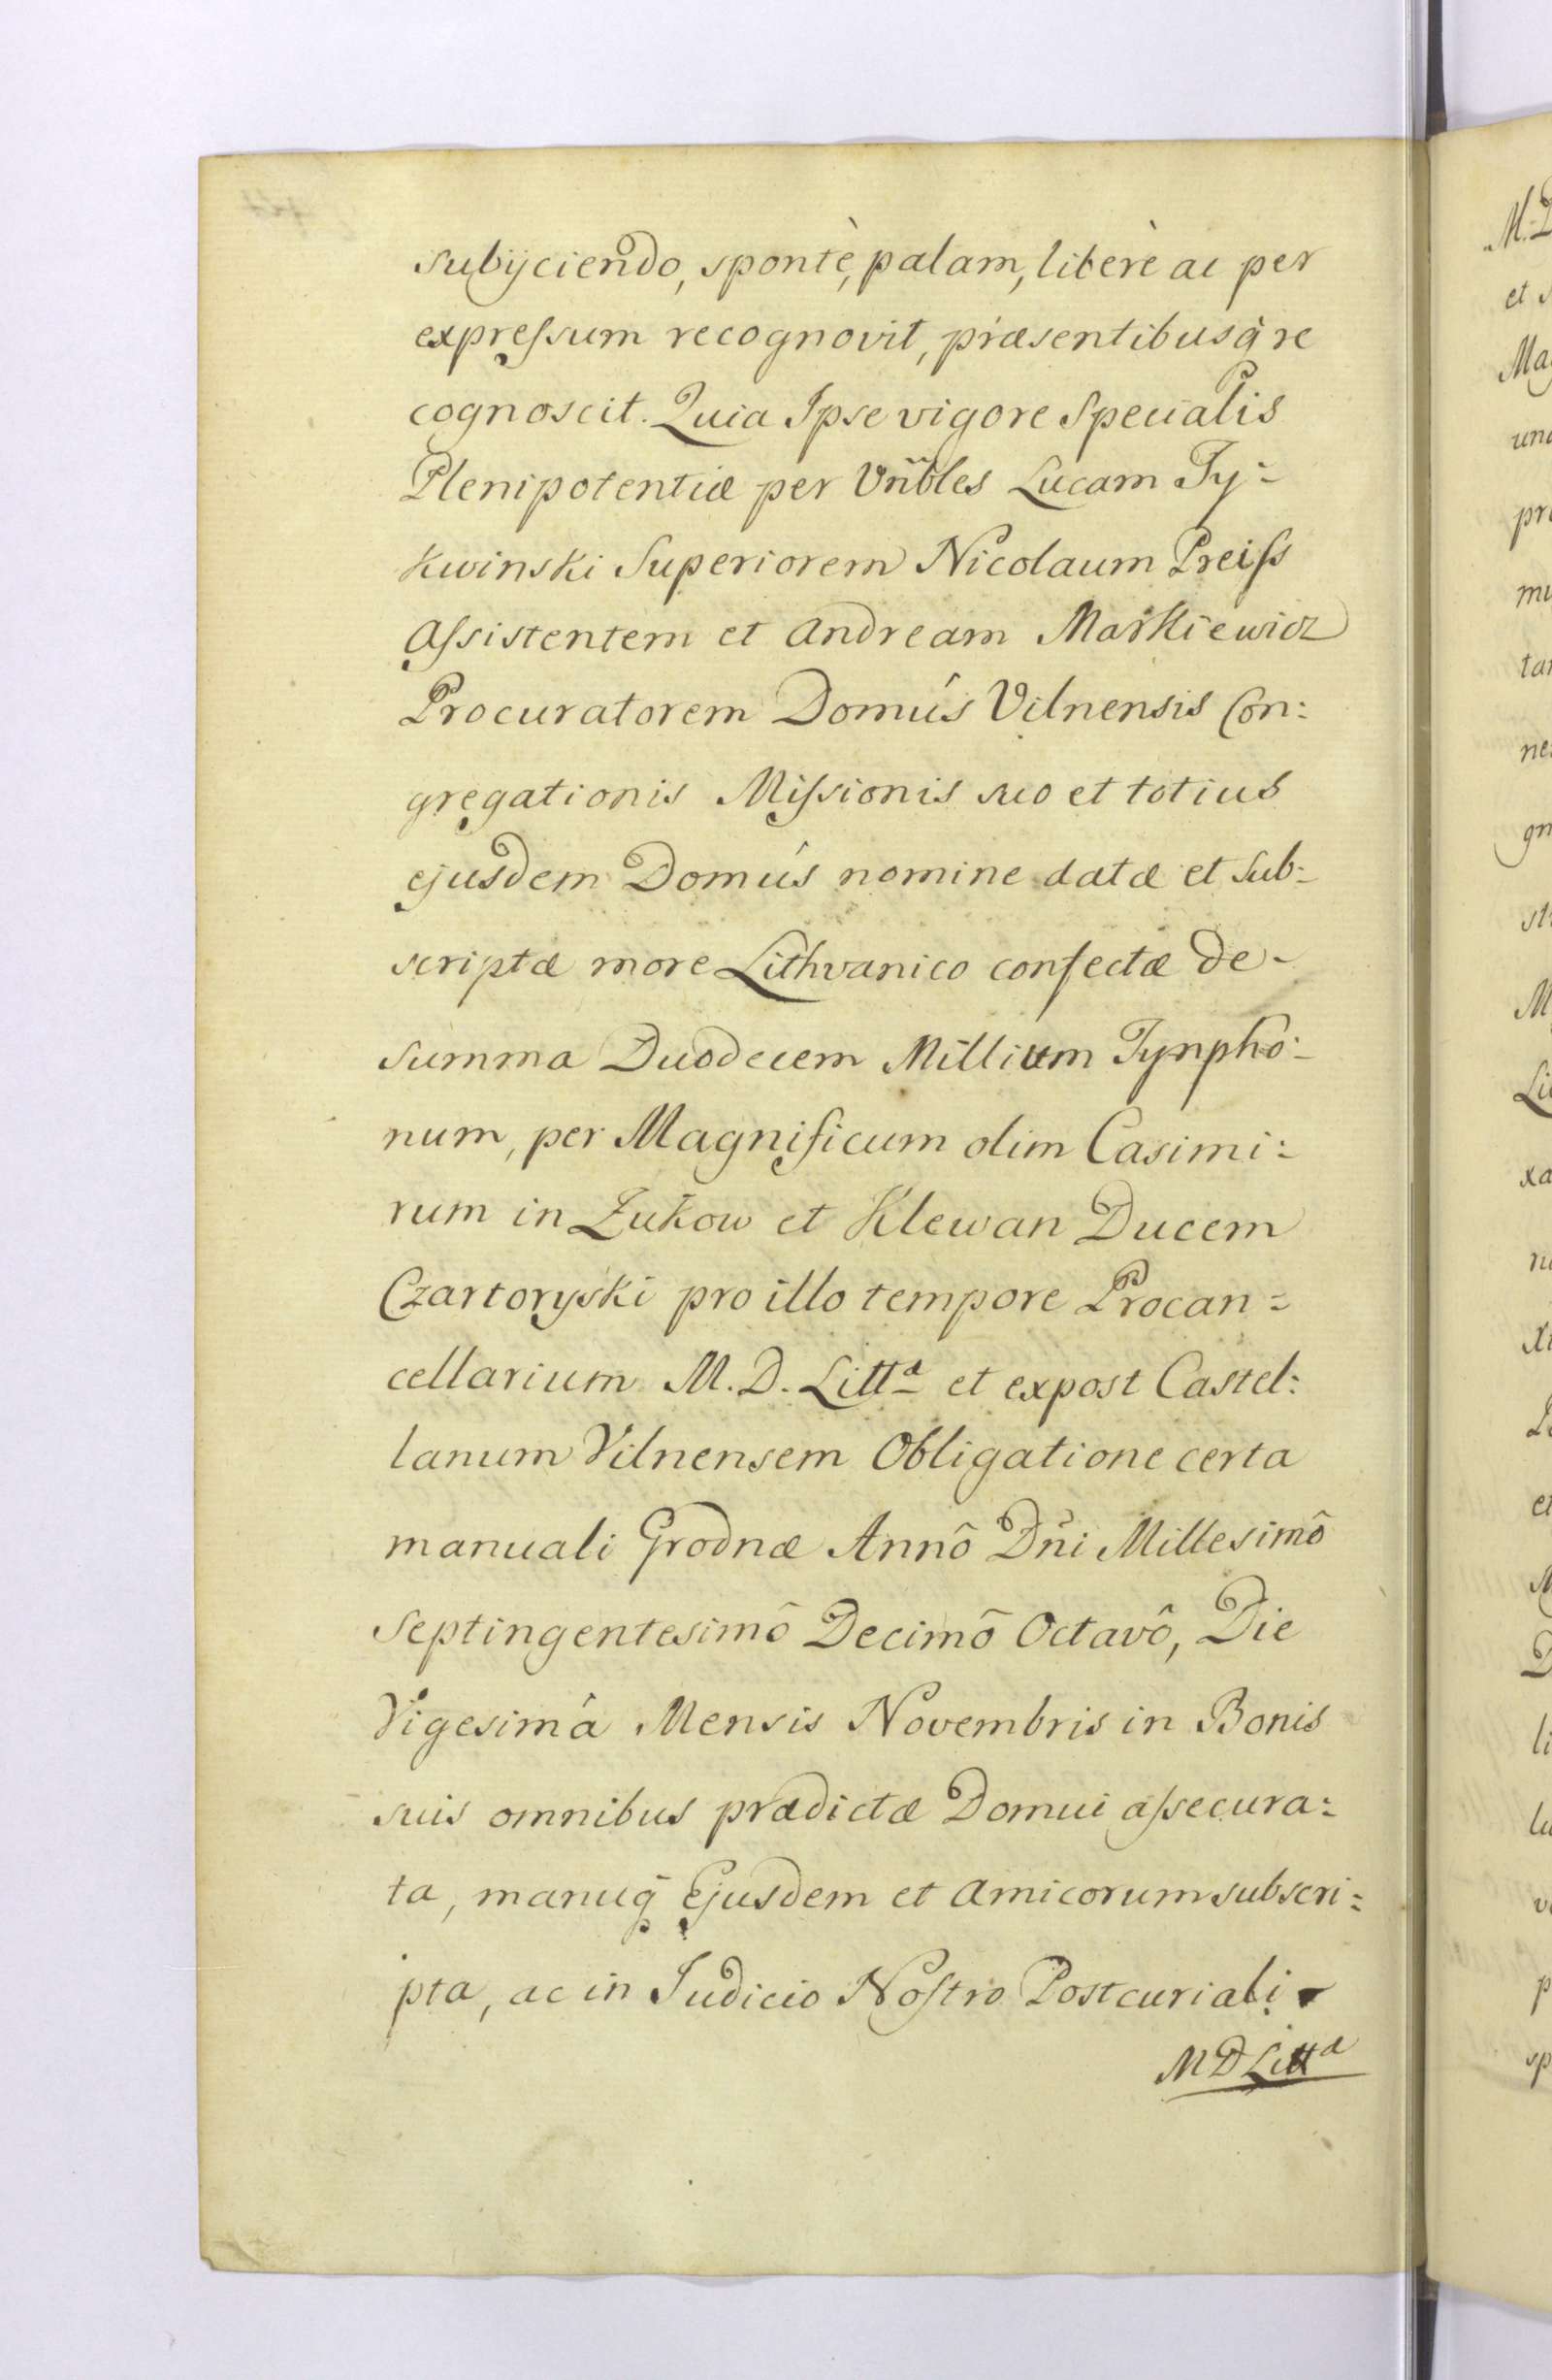 subijciendo, spontè, palam, liberè ac per
expreſsum recognovit, præsentibusq̀ re
cognoscit. Quia Ipse vigore Specialis
Plenipotentiæ per Vñbles Lucam Ty-
kwinski Superiorem Nicolaum Preiſs
Aſsistentem et Andream Markiewicz
Procuratorem Domûs Vilnensis Con:
gregationis Miſsionis suo et totius
ejusdem Domûs nomine datæ et Sub:
scriptæ more Lithvanico confectæ de-
summa Duodecem Millium Tynpho:
num, per Magnificum olim Casimi:
rum in Zukow et Klewan Ducem
Czartoryski pro illo tempore Procan=
cellarium M. D. Littᵃ et expost Castel:
lanum Vilnensem Obligatione certa
manuali Grodnæ Annô Dñi Millesimô
Septingentesimô Decimô Octavô, Die
Vigesimâ Mensis Novembris in Bonis
suis omnibus prædictæ Domui aſsecura:
ta, manuq̃ Ejusdem et Amicorum subscri:
pta, ac in Judicio Noſtro Postcuriali
M D Littᵃ
M. D
et s
Ma
una
pr
mu
ta
ne
gn
st
M
Li
xa
n
xi
et
D
li
lu
v
p
sp